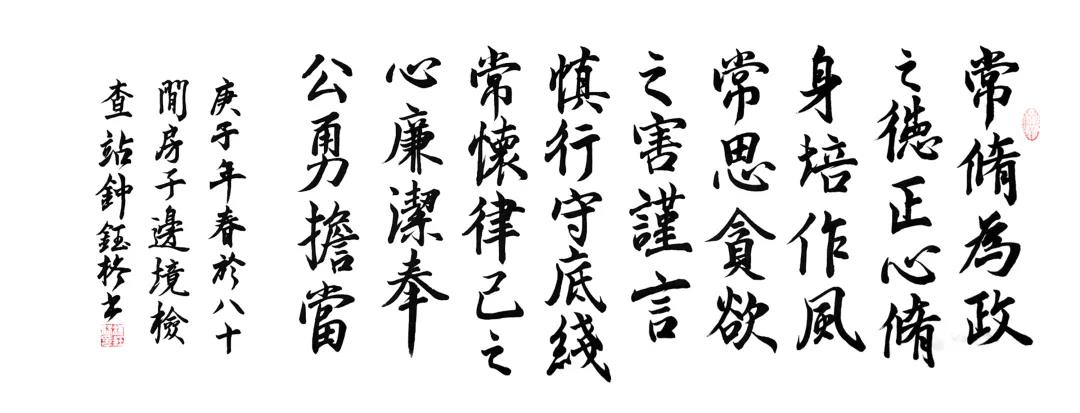 常脩為政
之德正心脩
身培作風
常思貪欲
之害謹言
慎行守底綫
常懷律己之
心廉潔奉
公勇擔當
庚子年春於八十
間房子邊境檢
查站鈡鈺柊書